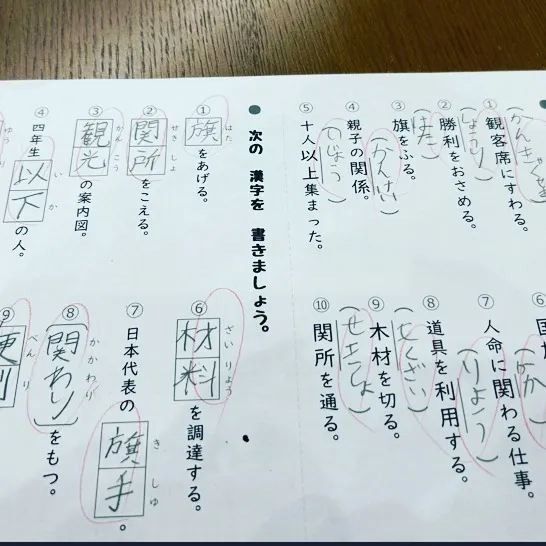 ① 観客席にすわる。
（かんきゃくせき
② 勝利をおさめる。
（しょうり）
③ 旗をふる。
（はた）
④ 親子の関係。
（かんけい）
⑤ 十人以上集まった。
（いじょう）
⑥
⑦ 人命に関わる仕事。
（かか）
⑧ 道具を利用する。
（りよう）
⑨ 木材を切る。
（もくざい）
⑩ 関所を通る。
（せきしょ）
● 次の 漢字を 書きましょう。
① 旗をあげる。
はた
② 関所をこえる。
せき しょ
③ 観光の案内図。
かん こう
④ 四年生以下の人。
い か
⑥ 材料を調達する。
ざい りょう
⑦ 日本代表の旗手。
き しゅ
⑧ （関わり）をもつ。
かかわり
⑨ 便利
べん り